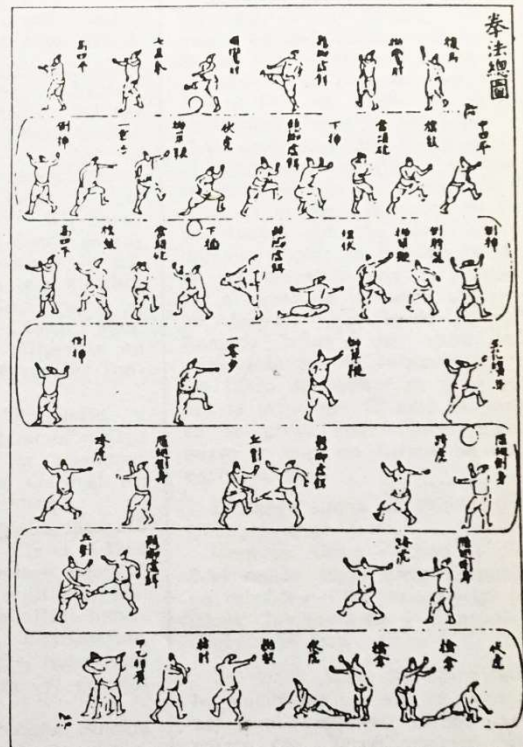 拳法總圖
探馬
拗鸞肘
懸脚虛餌
順鸞肘
七星拳
高四平
中四平
當頭砲
懸脚虛餌
伏虎
拗單鞭
一霎步
倒挿
倒挿
倒騎龍
拗單鞭
埋伏
懸脚虛餌
下挿
當頭砲
高四平
五花纏身
拗單鞭
一霎步
倒挿
雁翅側身
跨虎
懸脚虛餌
丘劉
雁翅側身
跨虎
雁翅側身
跨虎
懸脚虛餌
丘劉
伏虎
擒拿
擒拿
伏虎
抛架
拈肘
甲乙相負